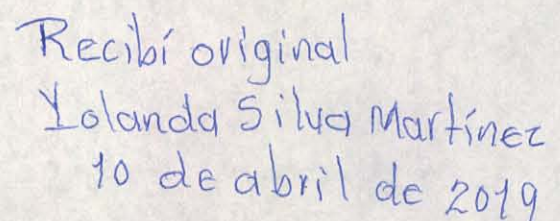 Recibí original
Yolanda Silva Martínez
10 de abril de 2019